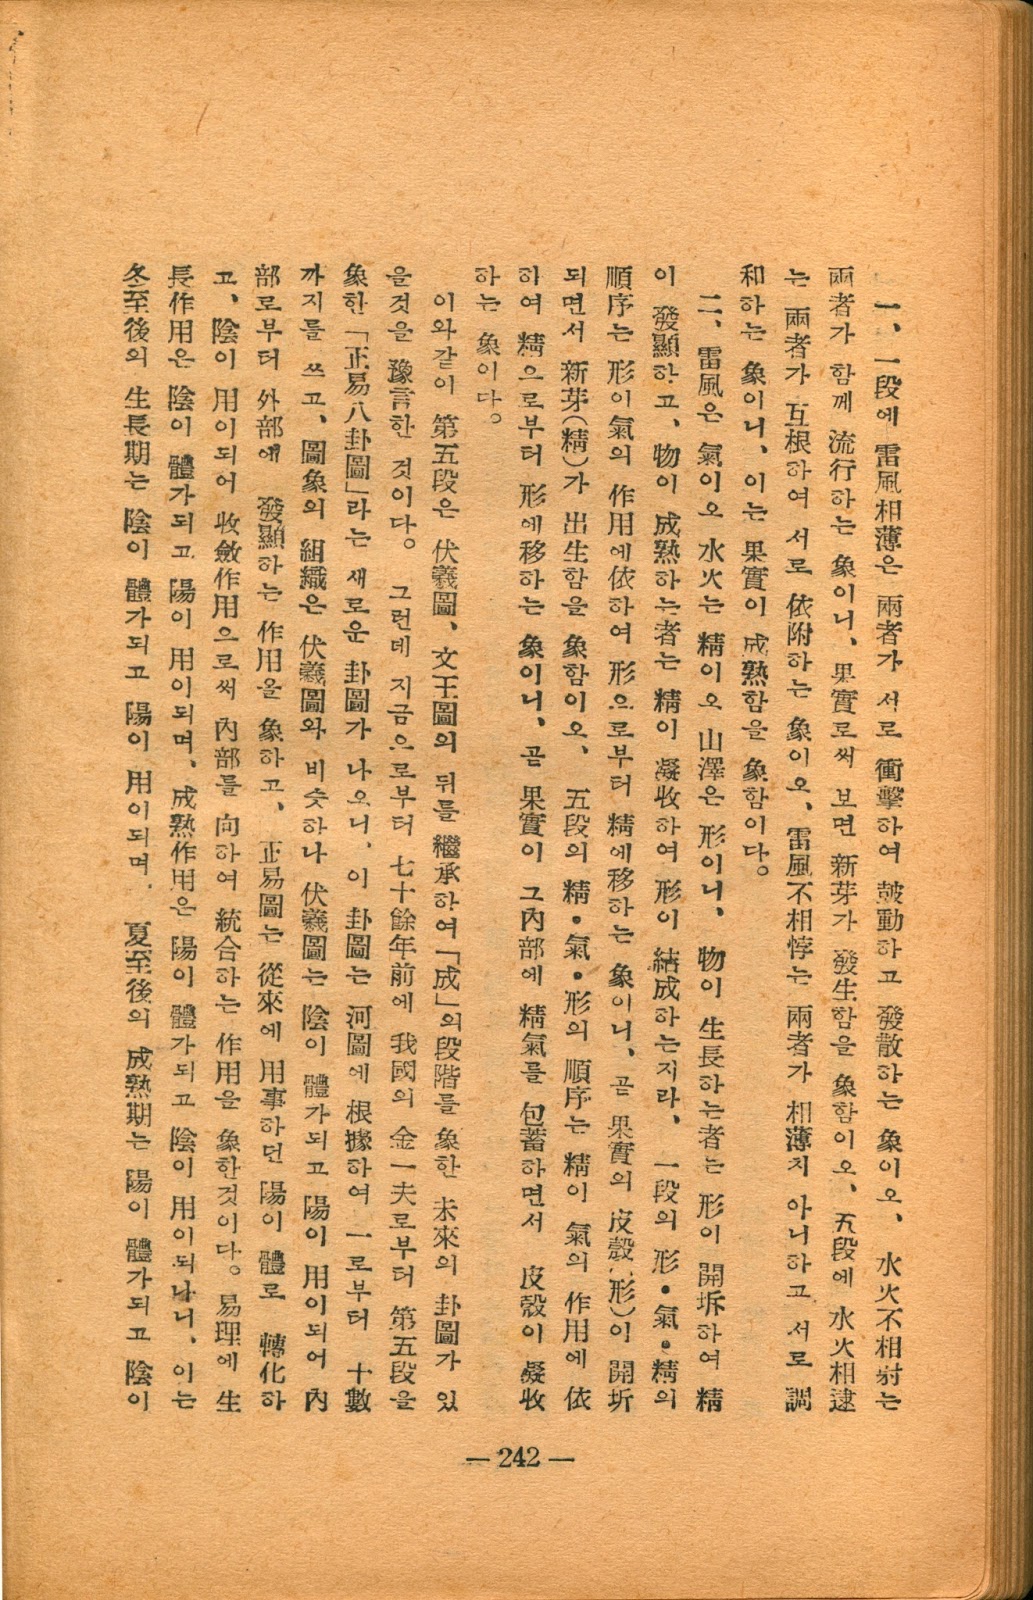 一、一段에 雷風相薄은 兩者가 서로 衝擊하여 鼓動하고 發散하는 象이오、 水火不相射는
兩者가 함께 流行하는 象이니、果實로써 보면 新芽가 發生함을 象함이오、五段에 水火相逮
는 兩者가 互根하여 서로 依附하는 象이오、雷風不相悖는 兩者가 相薄치 아니하고 서로 調
和하는 象이니、이는 果實이 成熟함을 象함이다。
二、雷風은 氣이오 水火는 精이오 山澤은 形이니、 物이 生長하는者는 形이 開坼하여 精
이 發顯하고、物이 成熟하는者는 精이 凝收하여 形이 結成하는지라、 一段의 形•氣•精의
順序는 形이氣의 作用에依하여 形으로부터 精에移하는 象이니、곧 果實의 皮殼(形)이 開坼
되면서 新芽(精)가 出生함을 象함이오、 五段의 精•氣•形의 順序는 精이 氣의 作用에 依
하여 精으로부터 形에移하는 象이니、곧 果實이 그內部에 精氣를 包蓄하면서 皮殼이 凝收
하는 象이다。
이와같이 第五段은 伏羲圖、文王圖의 뒤를 繼承하여「成」의段階를 象한 未來의 卦圖가 있
을것을 豫言한 것이다。 그런데 지금으로부터 七十餘年前에 我國의 金一夫로부터 第五段을
象한「正易八卦圖」라는 새로운 卦圖가 나오니、이 卦圖는 河圖에 根據하여 一로부터 十數
까지를 쓰고、圖象의 組織은 伏羲圖와 비슷하나 伏羲圖는 陰이 體가되고 陽이 用이되어 內
部로부터 外部에 發顯하는 作用을 象하고、 正易圖는 從來에 用事하던 陽이 體로 轉化하
고、陰이 用이되어 收斂作用으로써 內部를 向하여 統合하는 作用을 象한것이다。易理에 生
長作用은 陰이 體가되고 陽이 用이되며、成熟作用은 陽이 體가되고 陰이 用이되나니、이는
冬至後의 生長期는 陰이 體가되고 陽이 用이되며、 夏至後의 成熟期는 陽이 體가되고 陰이
— 242 —